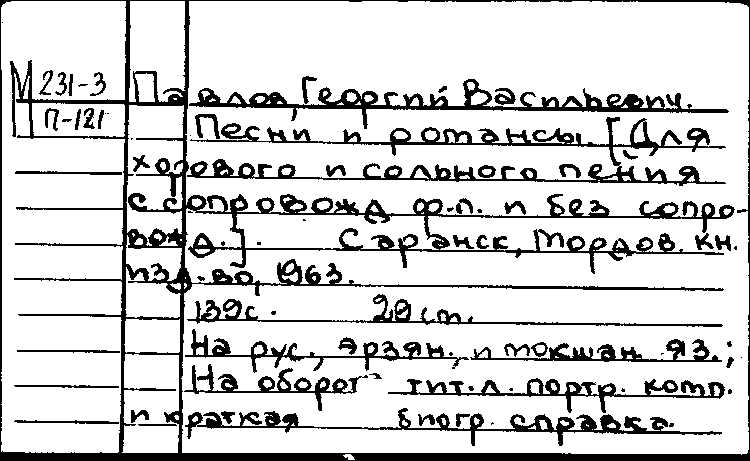 М 231-3
П-121
Павлов, Георгий Васильевич.
Песни и романсы. [Для
хорового и сольного пения
с сопровожд ф.п. и без сопро-
вожд.]. Саранск, Мордов. кн.
изд-во, 1963.
139с. 29 см.
На рус., эрзян., и мокшан. яз.;
На оборот тит.л. портр. комп.
и краткая биогр. справка.